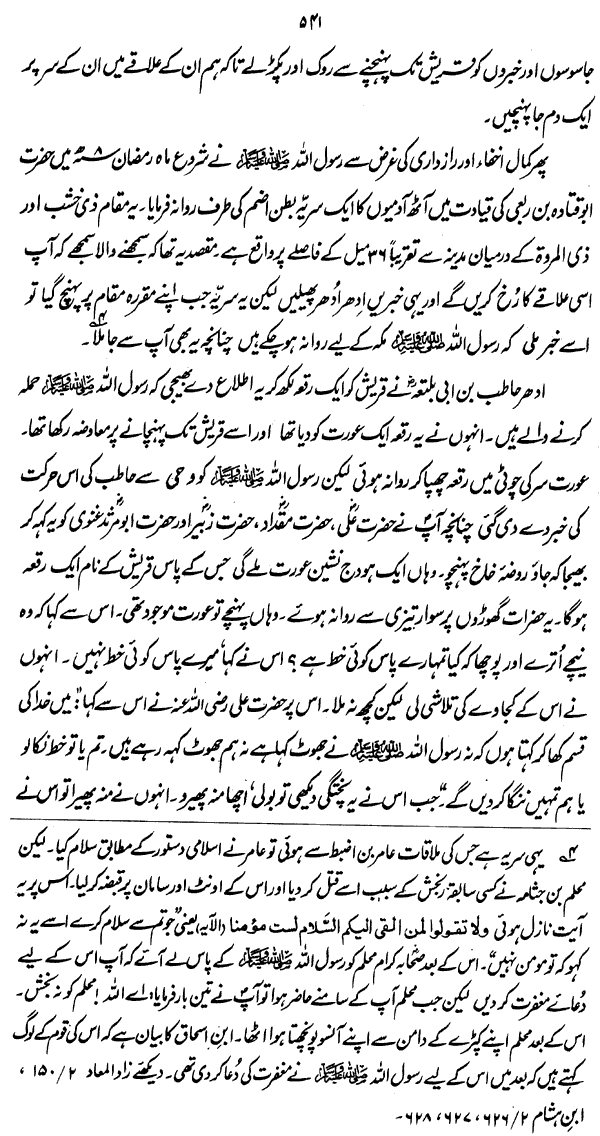 ۵۴۱
جاسوسوں اور خبروں کو قریش تک پہنچنے سے روک اور پکڑ لے تاکہ ہم ان کے علاقے میں ان کے سر پر
ایک دم جا پہنچیں۔
پھر کمال اخفاء اور رازداری کی غرض سے رسول اللہ ﷺ نے شروع ماہ رمضان ۸ھ میں حضرت
ابو قتادہ بن ربعی کی قیادت میں آٹھ آدمیوں کا ایک سریہ بطن اضم کی طرف روانہ فرمایا۔ یہ مقام ذی خشب اور
ذی المروۃ کے درمیان مدینہ سے تقریباً ۳۶ میل کے فاصلے پر واقع ہے۔ مقصد یہ تھا کہ سمجھنے والا سمجھے کہ آپ
اسی علاقے کا رُخ کریں گے اور یہی خبریں اِدھر اُدھر پھیلیں لیکن یہ سریّہ جب اپنے مقررہ مقام پر پہنچ گیا تو
اسے خبر ملی کہ رسول اللہ ﷺ مکہ کے لیے روانہ ہو چکے ہیں چنانچہ یہ بھی آپ سے جا ملا۔۴
ادھر حاطب بن ابی بلتعہؓ نے قریش کو ایک رقعہ لکھ کر یہ اطلاع دے بھیجی کہ رسول اللہ ﷺ حملہ
کرنے والے ہیں۔ انہوں نے یہ رقعہ ایک عورت کو دیا تھا اور اسے قریش تک پہنچانے پر معاوضہ رکھا تھا۔
عورت سر کی چوٹی میں رقعہ چھپا کر روانہ ہوئی لیکن رسول اللہ ﷺ کو وحی سے حاطب کی اس حرکت
کی خبر دے دی گئی چنانچہ آپؐ نے حضرت علیؓ، حضرت مقدادؓ، حضرت زبیرؓ اور حضرت ابو مرثد غنویؓ کو یہ کہہ کر
بھیجا کہ جاؤ روضۂ خاخ پہنچو۔ وہاں ایک ہودج نشین عورت ملے گی جس کے پاس قریش کے نام ایک رقعہ
ہوگا۔ یہ حضرات گھوڑوں پر سوار تیزی سے روانہ ہوئے۔ وہاں پہنچے تو عورت موجود تھی۔ اس سے کہا کہ وہ
نیچے اُترے اور پوچھا کہ کیا تمہارے پاس کوئی خط ہے؟ اس نے کہا میرے پاس کوئی خط نہیں۔ انہوں
نے اس کے کجاوے کی تلاشی لی لیکن کچھ نہ ملا۔ اس پر حضرت علی رضی اللہ عنہ نے اس سے کہا: میں خدا کی
قسم کھا کر کہتا ہوں کہ نہ رسول اللہ ﷺ نے جھوٹ کہا ہے نہ ہم جھوٹ کہہ رہے ہیں۔ تم یا تو خط نکالو
یا ہم تمہیں ننگا کر دیں گے۔" جب اس نے یہ پختگی دیکھی تو بولی اچھا منہ پھیرو۔ انہوں نے منہ پھیرا تو اس نے
۴ یہی سریہ ہے جس کی ملاقات عامر بن اضبط سے ہوئی تو عامر نے اسلامی دستور کے مطابق سلام کیا۔ لیکن
محلم بن جثامہ نے کسی سابقہ رنجش کے سبب اسے قتل کر دیا اور اس کے اونٹ اور سامان پر قبضہ کر لیا۔ اس پر یہ
آیت نازل ہوئی ولا تقولوا لمن القی الیکم السَّلام لست مؤمنا (الآیہ) یعنی "جو تم سے سلام کرے اسے یہ نہ
کہو کہ تو مومن نہیں"۔ اس کے بعد صحابہ کرام محلم کو رسول اللہ ﷺ کے پاس لے آئے کہ آپ اس کے لیے
دُعائے مغفرت کر دیں لیکن جب محلم آپ کے سامنے حاضر ہوا تو آپؐ نے تین بار فرمایا: اے اللہ! محلم کو نہ بخش۔
اس کے بعد محلم اپنے کپڑے کے دامن سے اپنے آنسو پونچھتا ہوا اٹھا۔ ابن اسحاق کا بیان ہے کہ اس کی قوم کے لوگ
کہتے ہیں کہ بعد میں اس کے لیے رسول اللہ ﷺ نے مغفرت کی دُعا کر دی تھی۔ دیکھئے زاد المعاد ۲/۱۵۰،
ابن ہشام ۲/۶۲۶، ۶۲۷، ۶۲۸۔